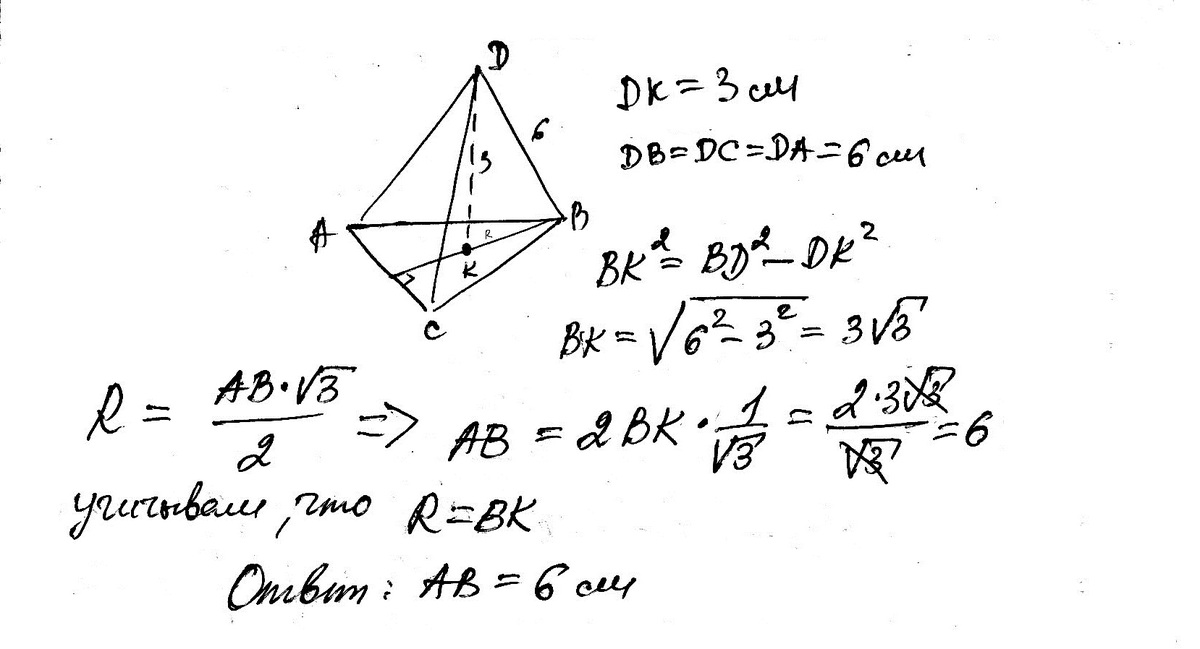 D
6
3
A
B
R
K
C
DK = 3 см
DB = DC = DA = 6 см
BK² = BD² – DK²
BK = √(6² – 3²) = 3√3
R = AB·√3 / 2 => AB = 2BK · 1/√3 = 2·3√3 / √3 = 6
учитывали, что R = BK
Ответ: AB = 6 см